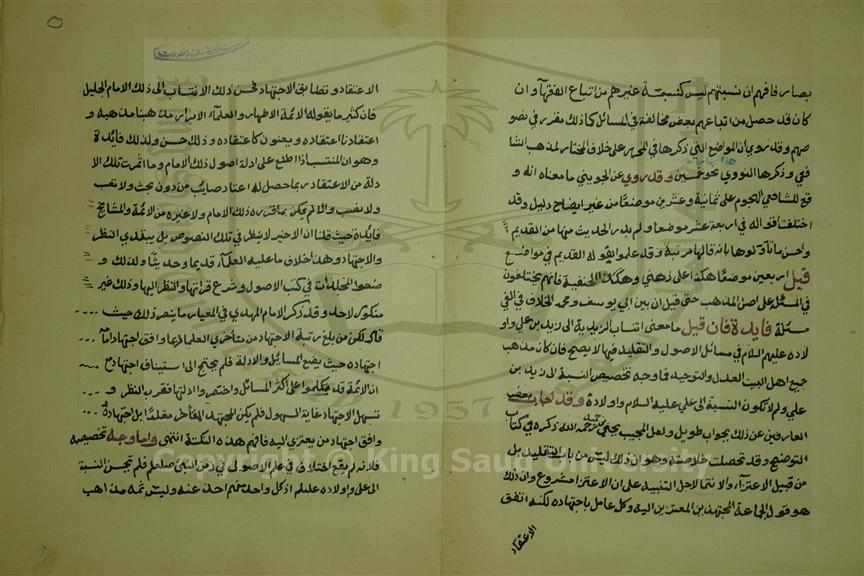 بصايرفافهم ان نسبتهم ليس كنسبة غيرهم من اتباع الفقهآ وان
كان قد حصل من اتباعهم بعض مخالفة في المسائل كما ذلك مقرر في نصو
صهم وقد روي ان المواضع التي ذكرها في المحرر على خلاف المختار لمذهب الشا
فعي وذكرها النووي نحو خمسين وقد روي عن الجويني ما معناه انه و
قع للشافعي الهجوم على ثمانية وعشرين موضعا من غير ايضاح دليل وقد
اختلفت اقواله في اربعة عشر موضعا ولم يدر الحديث منها من القديم
واحسن ما تأولوها بانه قالها مرتبة وقد علموا بقوله القديم في مواضع
قيل اربعين موضعا هكذا على ذهني وهكذا الحنفية فانهم يختلفون
في المسئلة على اصل المذهب حتى قيل ان بين ابي يوسف ومحمد الخلاف في الفي
مسئلة فايدة فان قيل ما معنى انتساب الزيدية الى زيد بن علي واو
لاده عليهم السلام في مسائل الاصول والتقليد فيها لا يصح فان كان مذهب
جميع اهل البيت العدل والتوحيد فما وجه تخصيص النسبة الى زيد بن
علي ولم لا تكون النسبة الى علي عليه السلام واولاده وقد اجاب بعض
العارفين عن ذلك بجواب طويل ولعل المجيب يحيى رحمه الله ذكره في كتاب
التوضيح وقد تحصلت خلاصته وهو ان ذلك ليس من باب التقليد بل
من قبيل الاعتزآء والانتما لاجل التنبيه على ان الاعتزا مشروع وان ذلك
هو قول الجماعة المجتهدين المعتزين اليه وكل عامل باجتهاده لكنه اتفق
الاعتقاد
الاعتقاد وتطابق الاجتهاد فحسن ذلك الانتساب الى ذلك الامام الجليل
فان كثير ما يقوله الائمة الاطهار والعلمآء الابرار مذهبنا مذهبه و
اعتقادنا اعتقاده ويعنون كاعتقاده وذلك حسن ولذلك فايدة
وهو ان المنتسب اذا اطلع على ادلة اصول ذلك الامام وما اثمرت تلك الا
دلة من الاعتقاد ربما حصل له اعتقاد صايب من دون بحث ولا تعب
ولا نصب والا لم يكن بما قرره ذلك الامام ولا غيره من الائمة والمشايخ
فايدة حيث قلنا ان الاخير لا ينظر في تلك النصوص بل يبتدي النظر
والاجتهاد وهذا خلاف ما عليه العلمآء قديما وحديثا ولذلك
صنعوا المجلدات في كتب الاصول وشرع قراتها والنظر اليها وذلك غير
منكور لاحد وقد ذكر الامام المهدي في المعيار ما ينصر ذلك حيث
قال لكن من بلغ رتبة الاجتهاد من متأخري العلما ربما وافق اجتهاد امام
اجتهاده حيث يضع المسائل والادلة فلم يحتج الى استيناف اجتهاد مع
ان الائمة قد تكلموا على اكثر المسائل واختصر وا ادلتها فقرب النظر و
تسهل الاجتهاد غاية السهول فلم يكن المجتهد المتأخر مقلدا بل اجتهاده
وافق اجتهاد من يعتزي اليه فافهم هذه النكتة انتهى واما وجه تخصيصه
فلانه لم يقع اختلاف في علم الاصول في زمن النبي صلعم فلم تحسن النسبة
الى علي واولاده عليلم اذ كل واحد منهم اخذ عنه وليس ثمه مذاهب
1957
Copyright © King Saud University